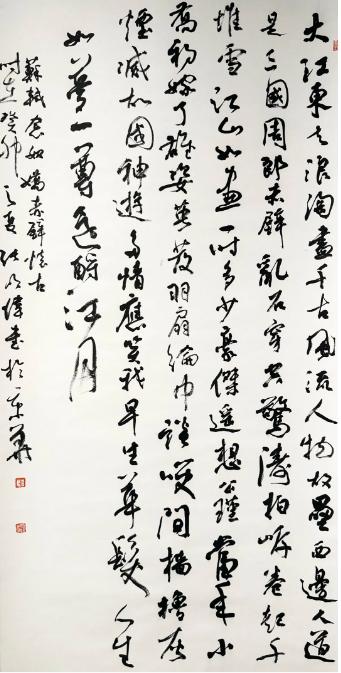 大江東去浪淘盡千古風流人物故壘西邊人道
是三國周郎赤壁亂石穿空驚濤拍岸卷起千
堆雪江山如畫一時多少豪傑遥想公瑾當年小
喬初嫁了雄姿英發羽扇綸巾談笑間檣櫓灰
煙滅故國神遊多情應笑我早生華髮人生
如夢一尊還酹江月
蘇軾念奴嬌赤壁懷古
時在癸卯之夏張偉書於京華